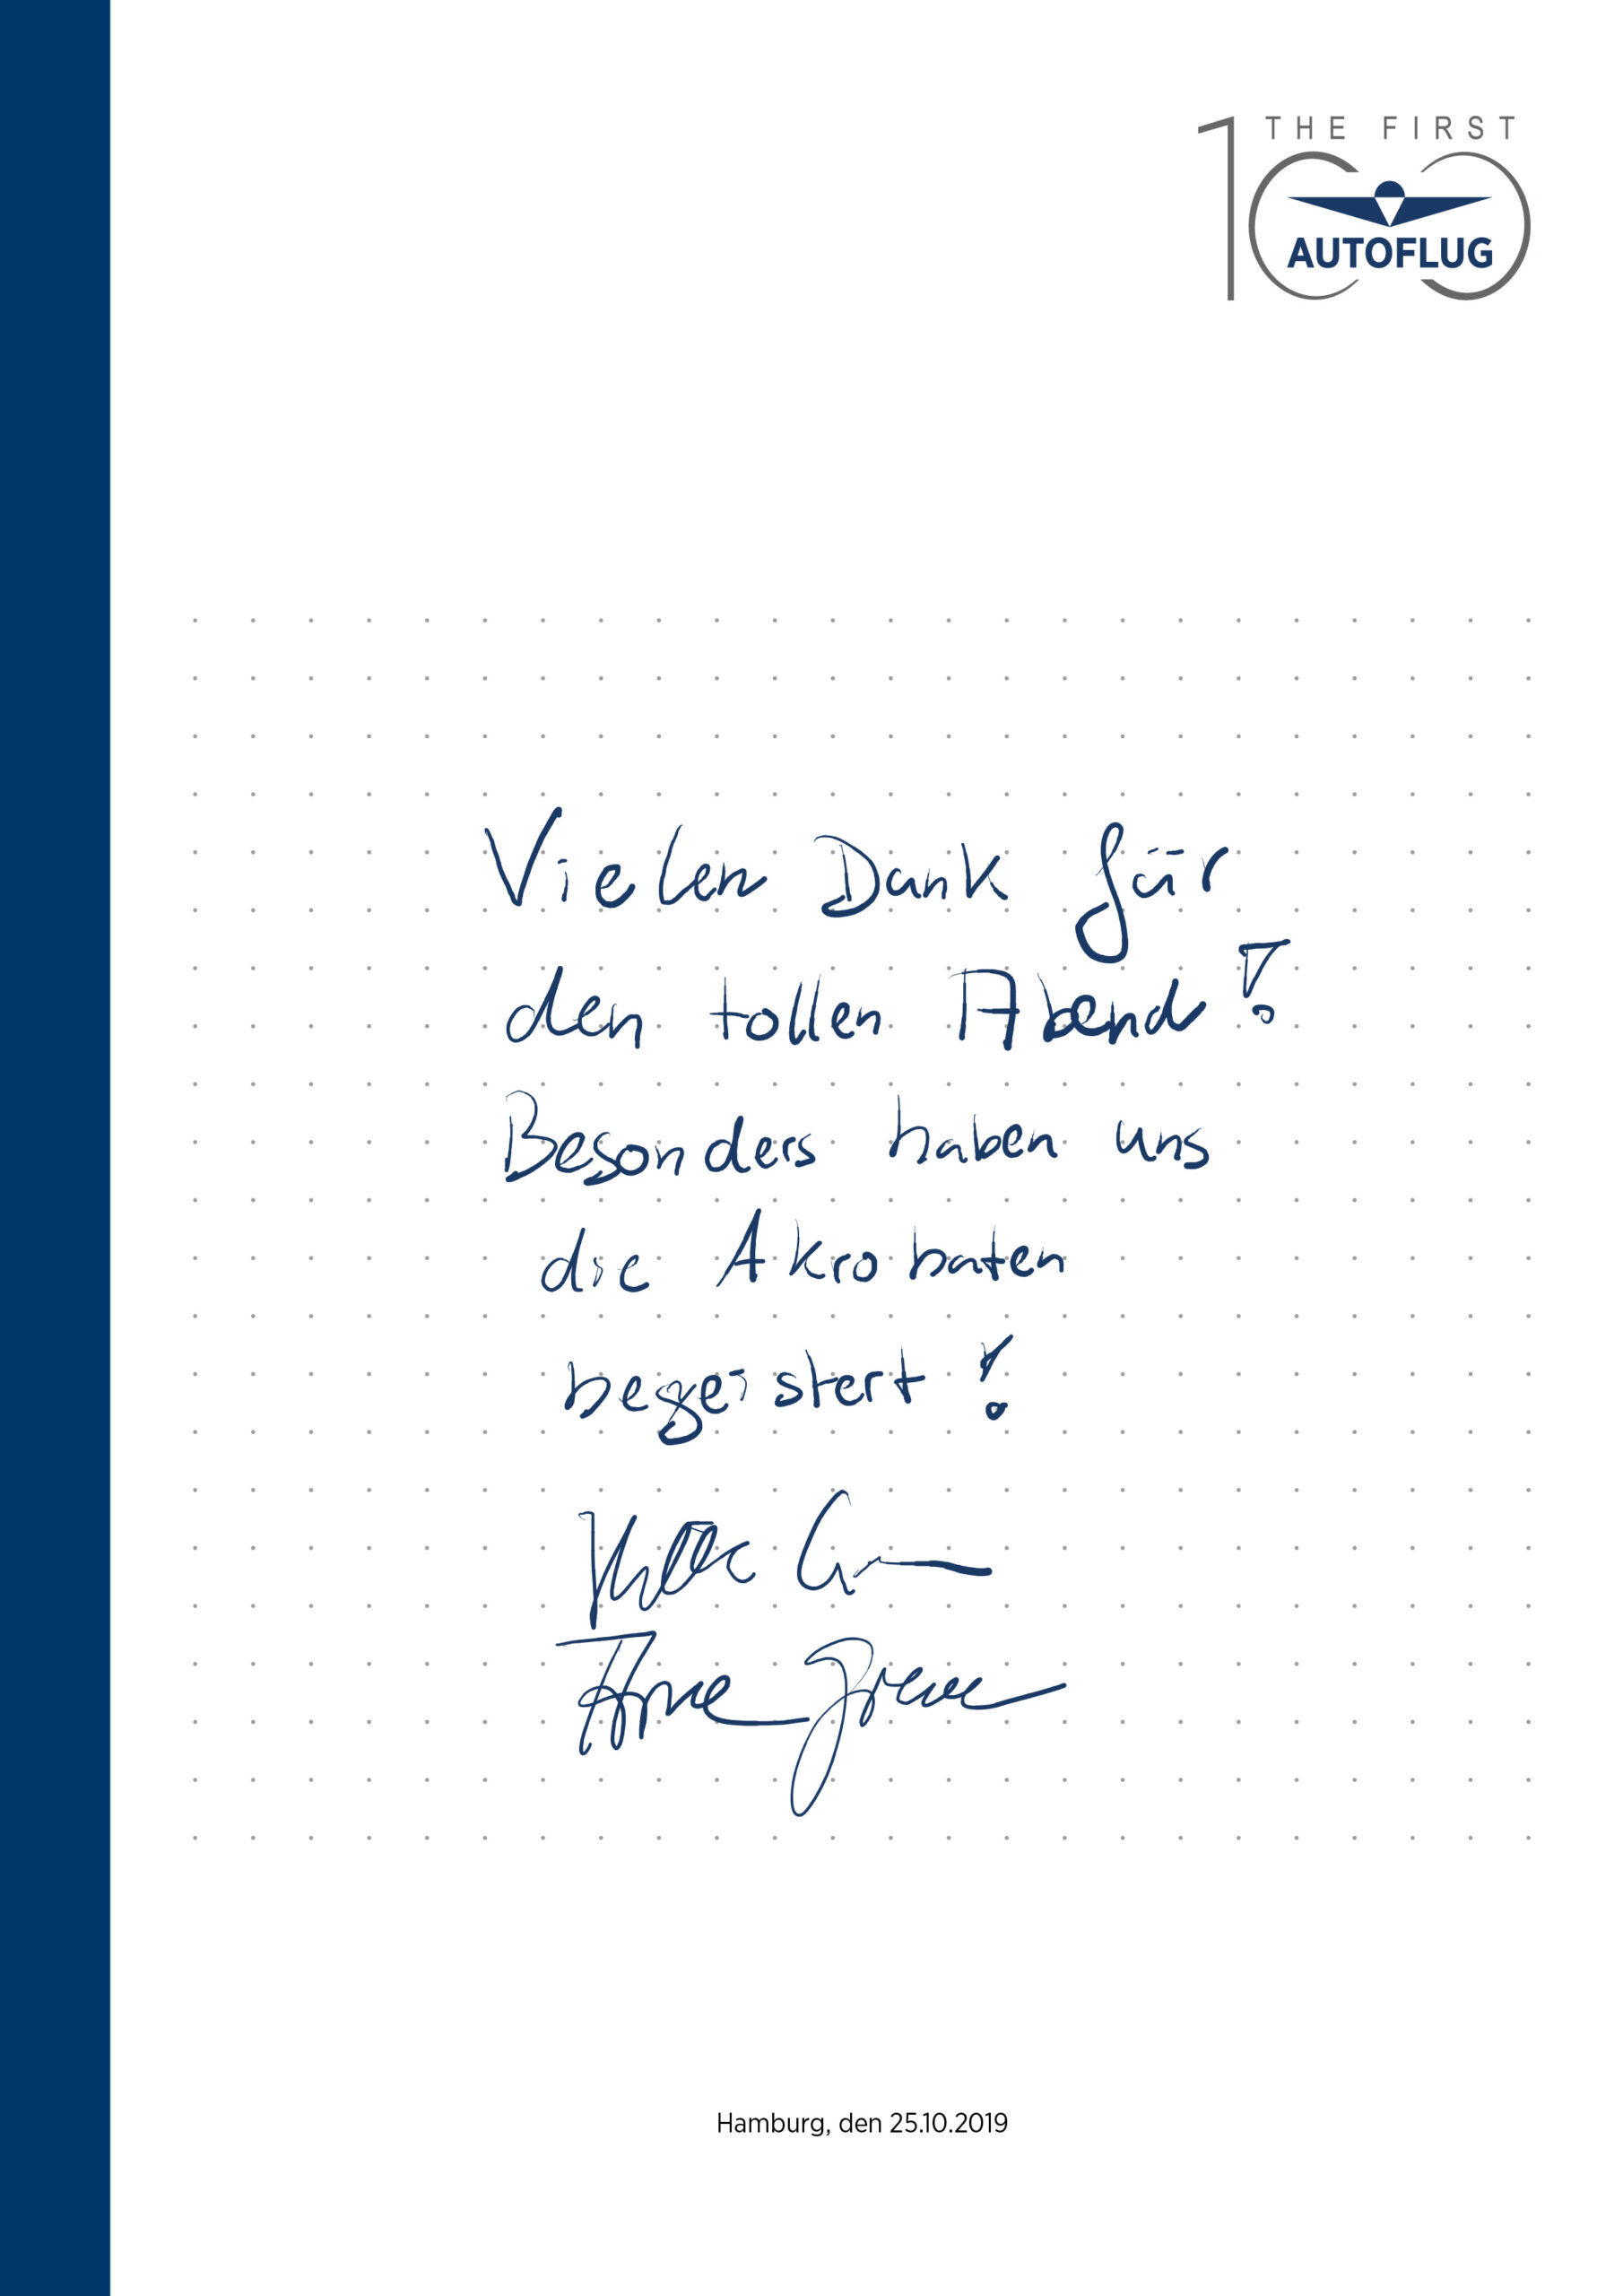 THE FIRST
100
AUTOFLUG
Vielen Dank für
den tollen Abend!
Besonders haben uns
die Akrobaten
begeistert!
Hamburg, den 25.10.2019